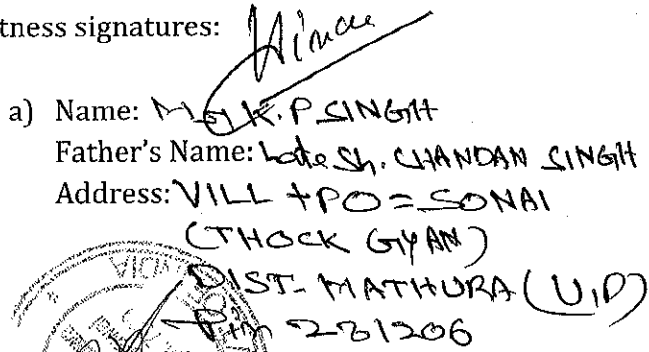 tness signatures:
a) Name: K. P SINGH
Father's Name: Late Sh. CHANDAN SINGH
Address: VILL + PO = SONAI
(THOCK GYAN)
DIST- MATHURA (U.P)
Pin 281206